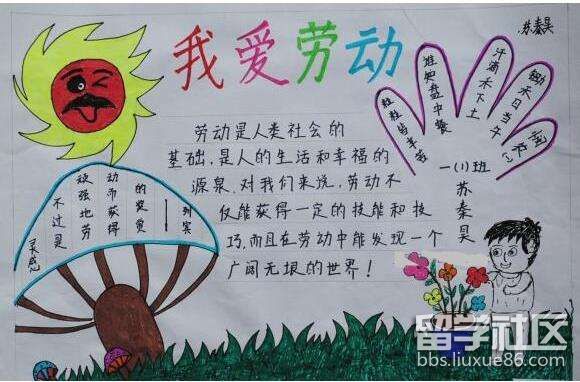 苏秦昊
我爱劳动
锄禾日当午
汗滴禾下土
谁知盘中餐
粒粒皆辛苦
一(1)班
苏秦昊
劳动是人类社会的
基础,是人的生活和幸福的
源泉.对我们来说,劳动不
仅能获得一定的技能和技
巧,而且在劳动中能发现一个
广阔无垠的世界!
灵感
不过是
顽强地劳
动而获得
的奖赏
——列宾
留学社区
bbs.liuxue86.com